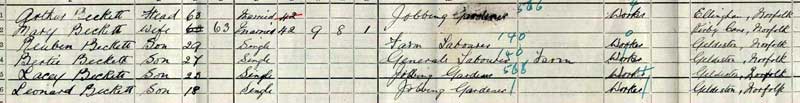 1 Arthur Beckett Head 63 Married 42 Jobbing Gardener 566 Worker Ellingham, Norfolk
2 Mary Beckett Wife 63 Married 42 9 8 1 0 Kirby Cane, Norfolk
3 Reuben Beckett Son 29 Single Farm Labourer 140 Worker Geldeston, Norfolk
4 Bertie Beckett Son 27 Single General Labourer 140 Farm Worker Geldeston, Norfolk
5 Lacey Beckett Son 23 Single Jobbing Gardener 566 Worker Geldeston, Norfolk
6 Leonard Beckett Son 18 Single Jobbing Gardener Worker Geldeston, Norfolk